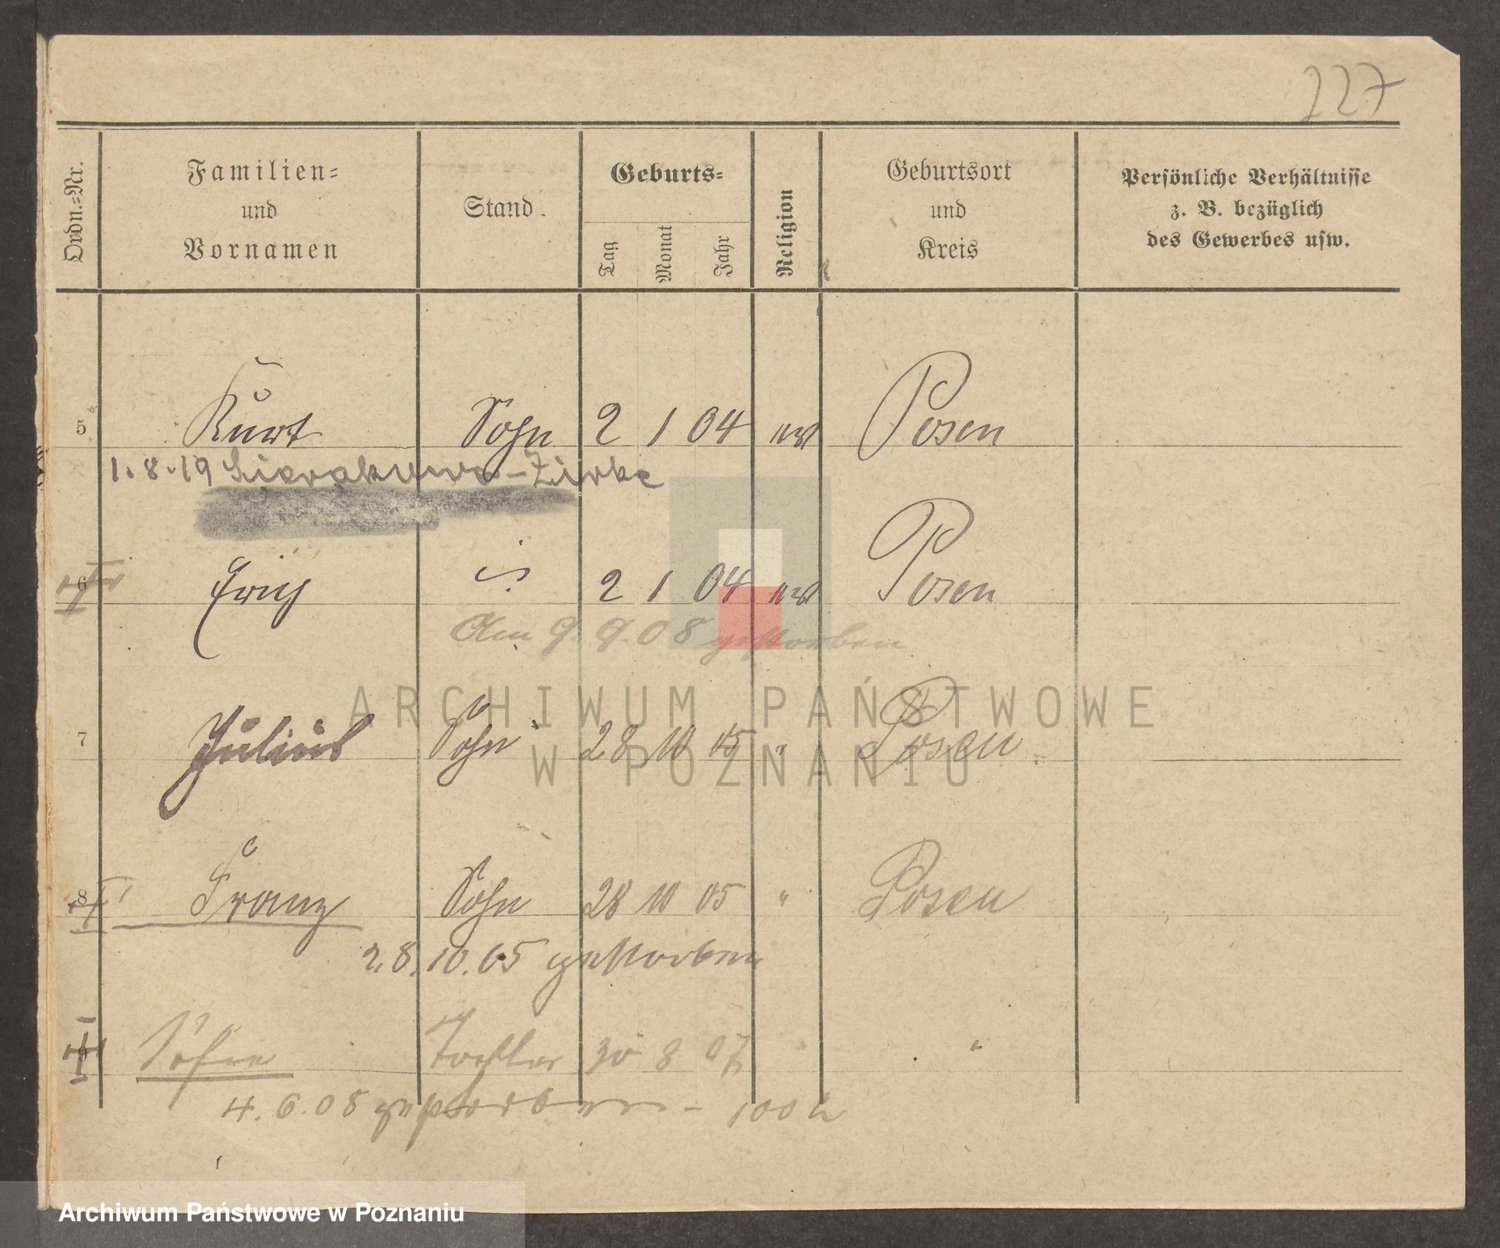 227
Ordn.-Nr.
Familien-
und
Vornamen
Stand.
Geburts-
Tag
Monat
Jahr
Religion
Geburtsort
und
Kreis
Persönliche Verhältnisse
z. B. bezüglich
des Gewerbes usw.
5 Kurt Sohn 2 1 04 ev Posen
1.8.19 Sierakowo-Zirke
6 Erich 2 1 04 ev Posen
Am 9.9.08 gestorben
7 Julius Sohn 28 10 05 " Posen
8 Franz Sohn 28 10 05 " Posen
28.10.05 gestorben
9 Sofie Tochter 30 8 07 " "
4.6.08 gestorben -
ARCHIWUM PAŃSTWOWE
W POZNANIU
Archiwum Państwowe w Poznaniu